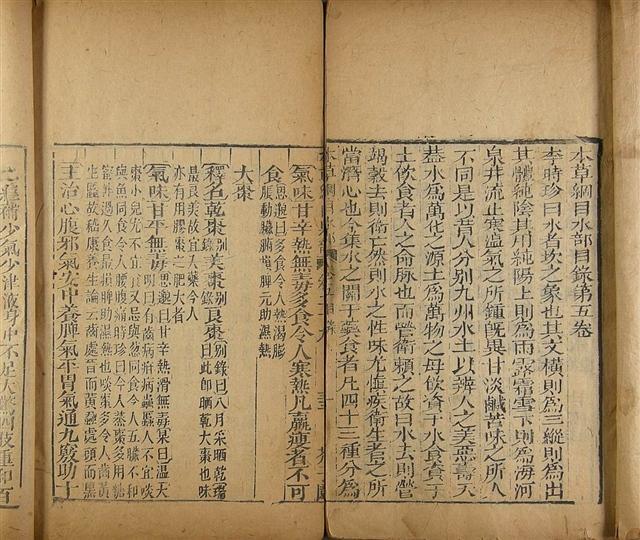 本草綱目水部目錄第五卷
李時珍曰水者坎之象也其文橫則為三縱則為出
其體純陰其用純陽上則為雨露霜雪下則為海河
泉井流止寒溫氣之所鍾既異甘淡鹹苦味之所入
不同是以昔人分別九州水土以辨人之美惡壽夭
葢水為萬化之源土為萬物之母飲資于水食資于
土飲食者人之命脉也而營衛賴之故曰水去則營
竭穀去則衛亡然則水之性味尤慎疾衛生者之所
當潛心也今集水之關于藥食者凡四十三種分為
氣味甘辛熱無毒多食令人寒熱凡羸瘦者不可
食思邈曰多食令人熱渴膨脹動臟腑損脾元助濕熱
大棗
釋名乾棗別錄美棗別錄良棗別錄曰八月采晒乾瑞曰此即晒乾大棗也味
最良美故宜入藥今人亦有用膠棗之肥大者
氣味甘平無毒思邈曰甘辛熱滑無毒杲曰溫大明曰有齒病疳病蟲䘌人不宜啖
棗小兒尤不宜食又忌與葱同食令人五臟不和與魚同食令人腰腹痛時珍曰今人蒸棗多用糖
蜜拌過久食最損脾助濕熱也啖棗多令人齒黃生䘌故嵇康養生論云齒處晉而黃蝨處頭而黑
主治心腹邪氣安中養脾氣平胃氣通九竅助十
補少氣少津液身中不足大驚四肢重和百